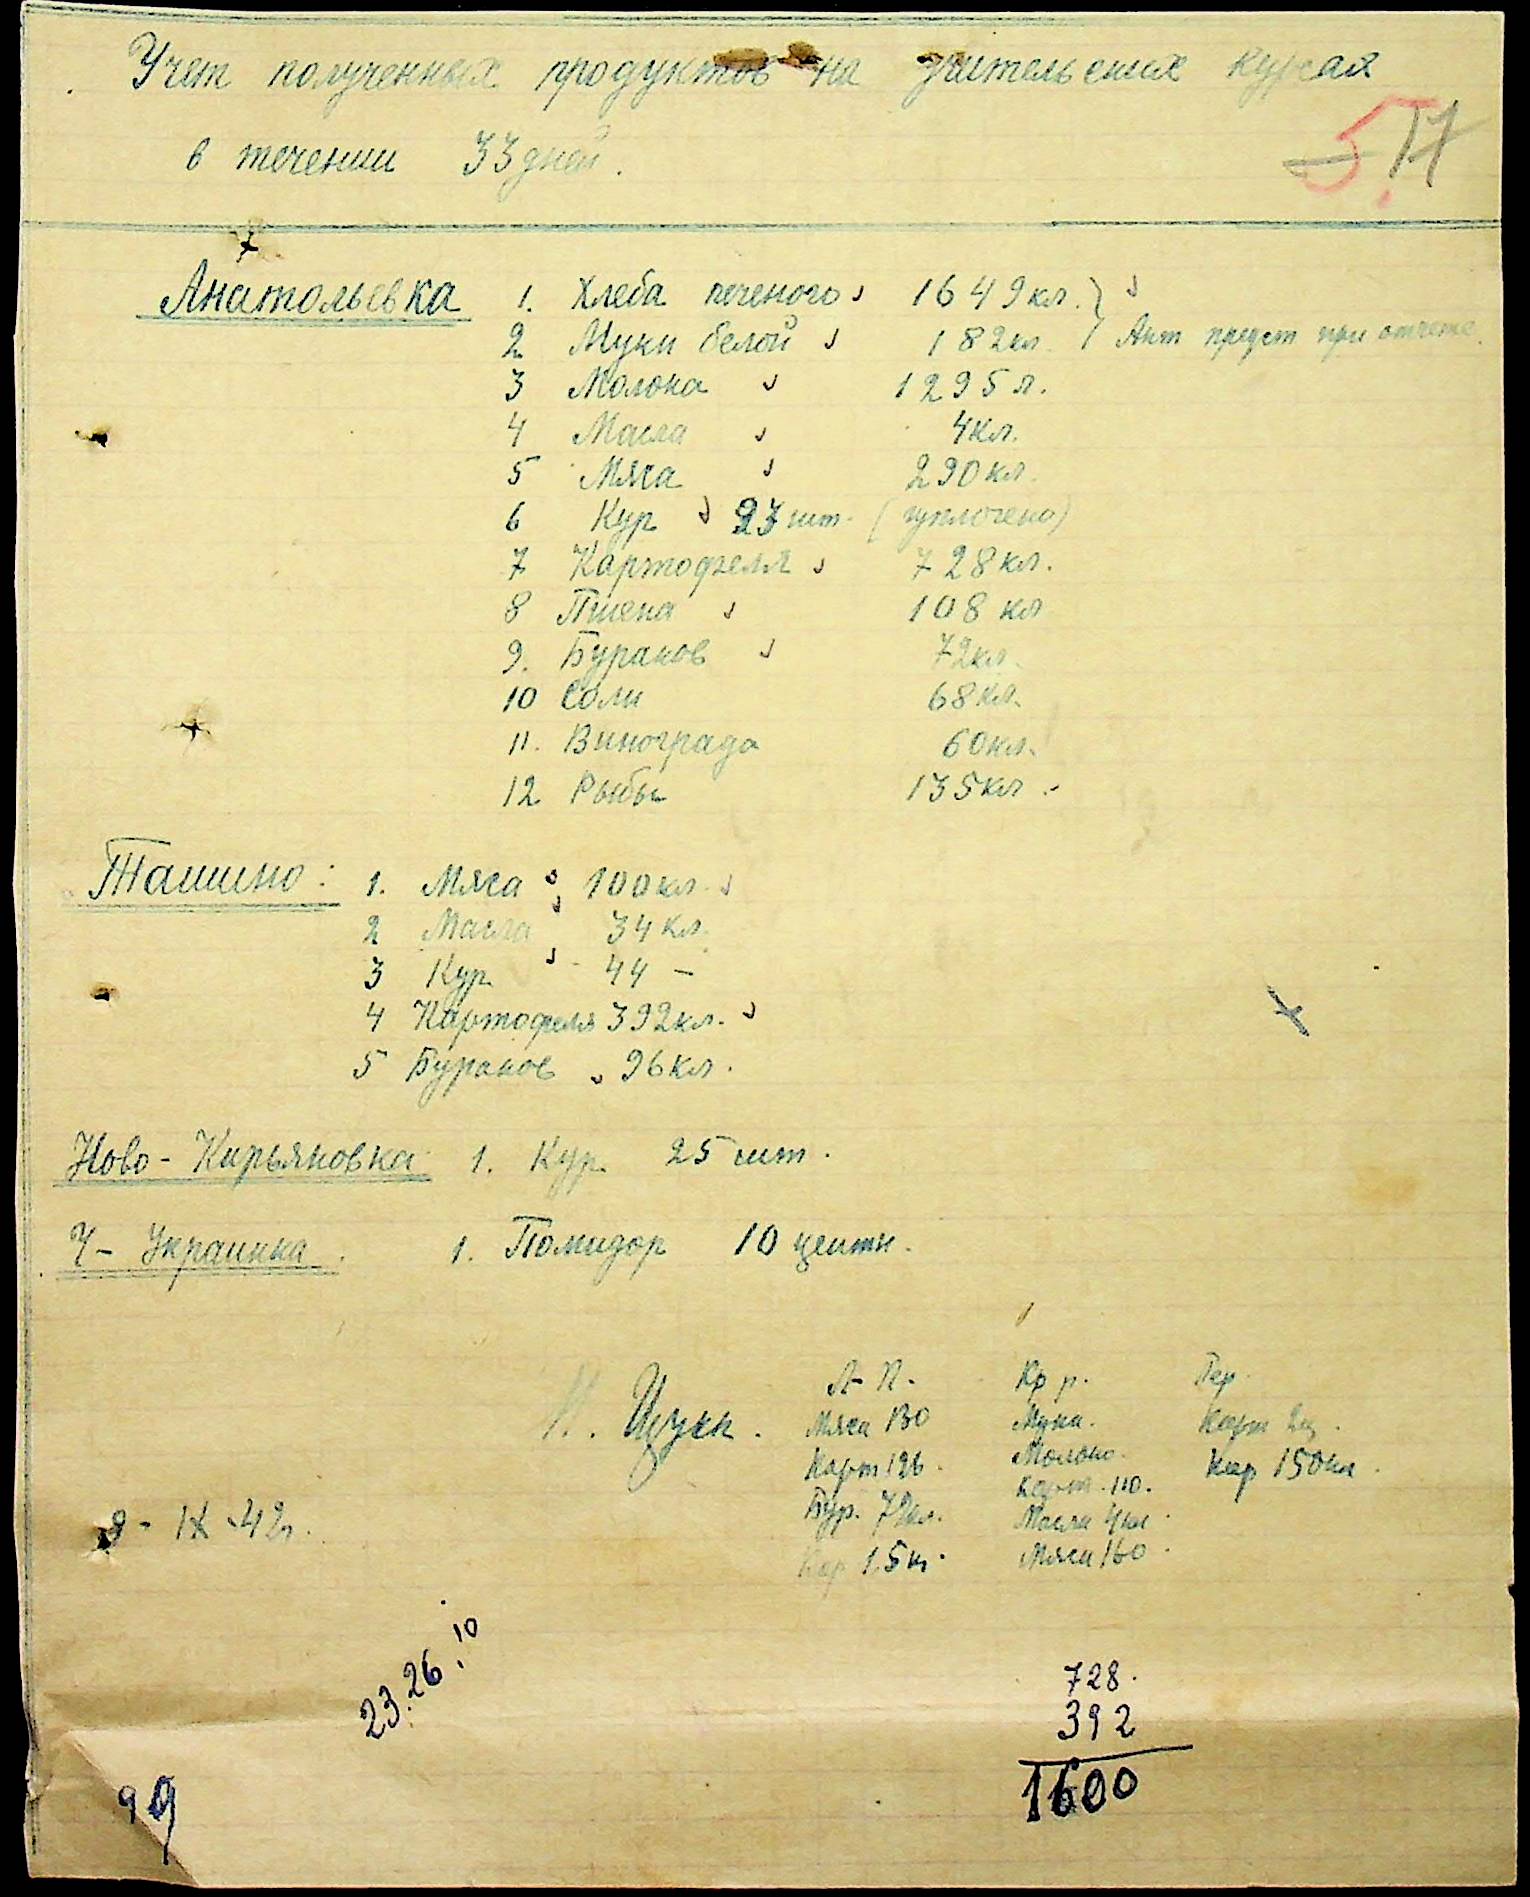 Учет полученных продуктов на учительских курсах
в течении 33 дней.
57
Анатольевка 1. Хлеба печеного 1649 кл.
2 Муки белой 182 кл. Акт предст при отчете.
3 Молока 1295 л.
4 Масла 4 кл.
5 Мяса 290 кл.
6 Кур 23 шт. (уплочено)
7 Картофеля 728 кл.
8 Пшена 108 кл
9. Бураков 72 кл.
10 Соли 68 кл.
11. Винограда 60 кл.
12 Рыбы 135 кл.
Ташино: 1. Мяса 100 кл.
2 Масла 34 кл.
3 Кур 44 —
4 Картофеля 392 кл.
5 Бураков 96 кл.
Ново-Кирьяновка 1. Кур 25 шт.
Ч-Украинка. 1. Помидор 10 центн.
Л-П. Кр р. Пер.
Щукн. Мяса 130 Мука. Карт 2ц.
Карт 126. Молоко. Кар 150 кл.
Бур. 72 кл. Карт. 110.
9-IX-42г. Масла 4 кл.
Кар 1,5 ц. Мяса 160.
23.26.10
728.
392
1600
99